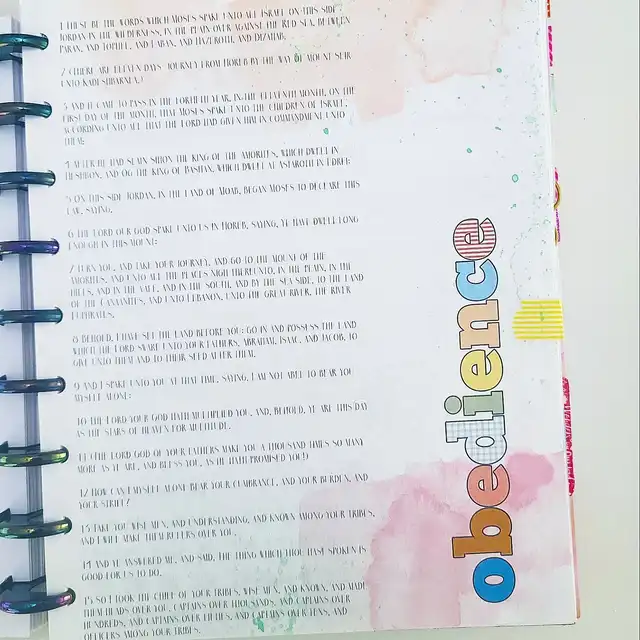 1 THESE BE THE WORDS WHICH MOSES SPAKE UNTO ALL ISRAEL ON THIS SIDE
JORDAN IN THE WILDERNESS, IN THE PLAIN OVER AGAINST THE RED SEA, BETWEEN
PARAN, AND TOPHEL, AND LABAN, AND HAZEROTH, AND DIZAHAB.
2 (THERE ARE ELEVEN DAYS' JOURNEY FROM HOREB BY THE WAY OF MOUNT SEIR
UNTO KADESHBARNEA.)
3 AND IT CAME TO PASS IN THE FORTIETH YEAR, IN THE ELEVENTH MONTH, ON THE
FIRST DAY OF THE MONTH, THAT MOSES SPAKE UNTO THE CHILDREN OF ISRAEL,
ACCORDING UNTO ALL THAT THE LORD HAD GIVEN HIM IN COMMANDMENT UNTO
THEM;
4 AFTER HE HAD SLAIN SIHON THE KING OF THE AMORITES, WHICH DWELT IN
HESHBON, AND OG THE KING OF BASHAN, WHICH DWELT AT ASTAROTH IN EDREI:
5 ON THIS SIDE JORDAN, IN THE LAND OF MOAB, BEGAN MOSES TO DECLARE THIS
LAW, SAYING,
6 THE LORD OUR GOD SPAKE UNTO US IN HOREB, SAYING, YE HAVE DWELT LONG
ENOUGH IN THIS MOUNT:
7 TURN YOU, AND TAKE YOUR JOURNEY, AND GO TO THE MOUNT OF THE
AMORITES, AND UNTO ALL THE PLACES NIGH THEREUNTO, IN THE PLAIN, IN THE
HILLS, AND IN THE VALE, AND IN THE SOUTH, AND BY THE SEA SIDE, TO THE LAND
OF THE CANAANITES, AND UNTO LEBANON, UNTO THE GREAT RIVER, THE RIVER
EUPHRATES.
8 BEHOLD, I HAVE SET THE LAND BEFORE YOU: GO IN AND POSSESS THE LAND
WHICH THE LORD SWARE UNTO YOUR FATHERS, ABRAHAM, ISAAC, AND JACOB, TO
GIVE UNTO THEM AND TO THEIR SEED AFTER THEM.
9 AND I SPAKE UNTO YOU AT THAT TIME, SAYING, I AM NOT ABLE TO BEAR YOU
MYSELF ALONE:
10 THE LORD YOUR GOD HATH MULTIPLIED YOU, AND, BEHOLD, YE ARE THIS DAY
AS THE STARS OF HEAVEN FOR MULTITUDE.
11 (THE LORD GOD OF YOUR FATHERS MAKE YOU A THOUSAND TIMES SO MANY
MORE AS YE ARE, AND BLESS YOU, AS HE HATH PROMISED YOU!)
12 HOW CAN I MYSELF ALONE BEAR YOUR CUMBRANCE, AND YOUR BURDEN, AND
YOUR STRIFE?
13 TAKE YOU WISE MEN, AND UNDERSTANDING, AND KNOWN AMONG YOUR TRIBES,
AND I WILL MAKE THEM RULERS OVER YOU.
14 AND YE ANSWERED ME, AND SAID, THE THING WHICH THOU HAST SPOKEN IS
GOOD FOR US TO DO.
15 SO I TOOK THE CHIEF OF YOUR TRIBES, WISE MEN, AND KNOWN, AND MADE
THEM HEADS OVER YOU, CAPTAINS OVER THOUSANDS, AND CAPTAINS OVER
HUNDREDS, AND CAPTAINS OVER FIFTIES, AND CAPTAINS OVER TENS, AND
OFFICERS AMONG YOUR TRIBES.
obedience